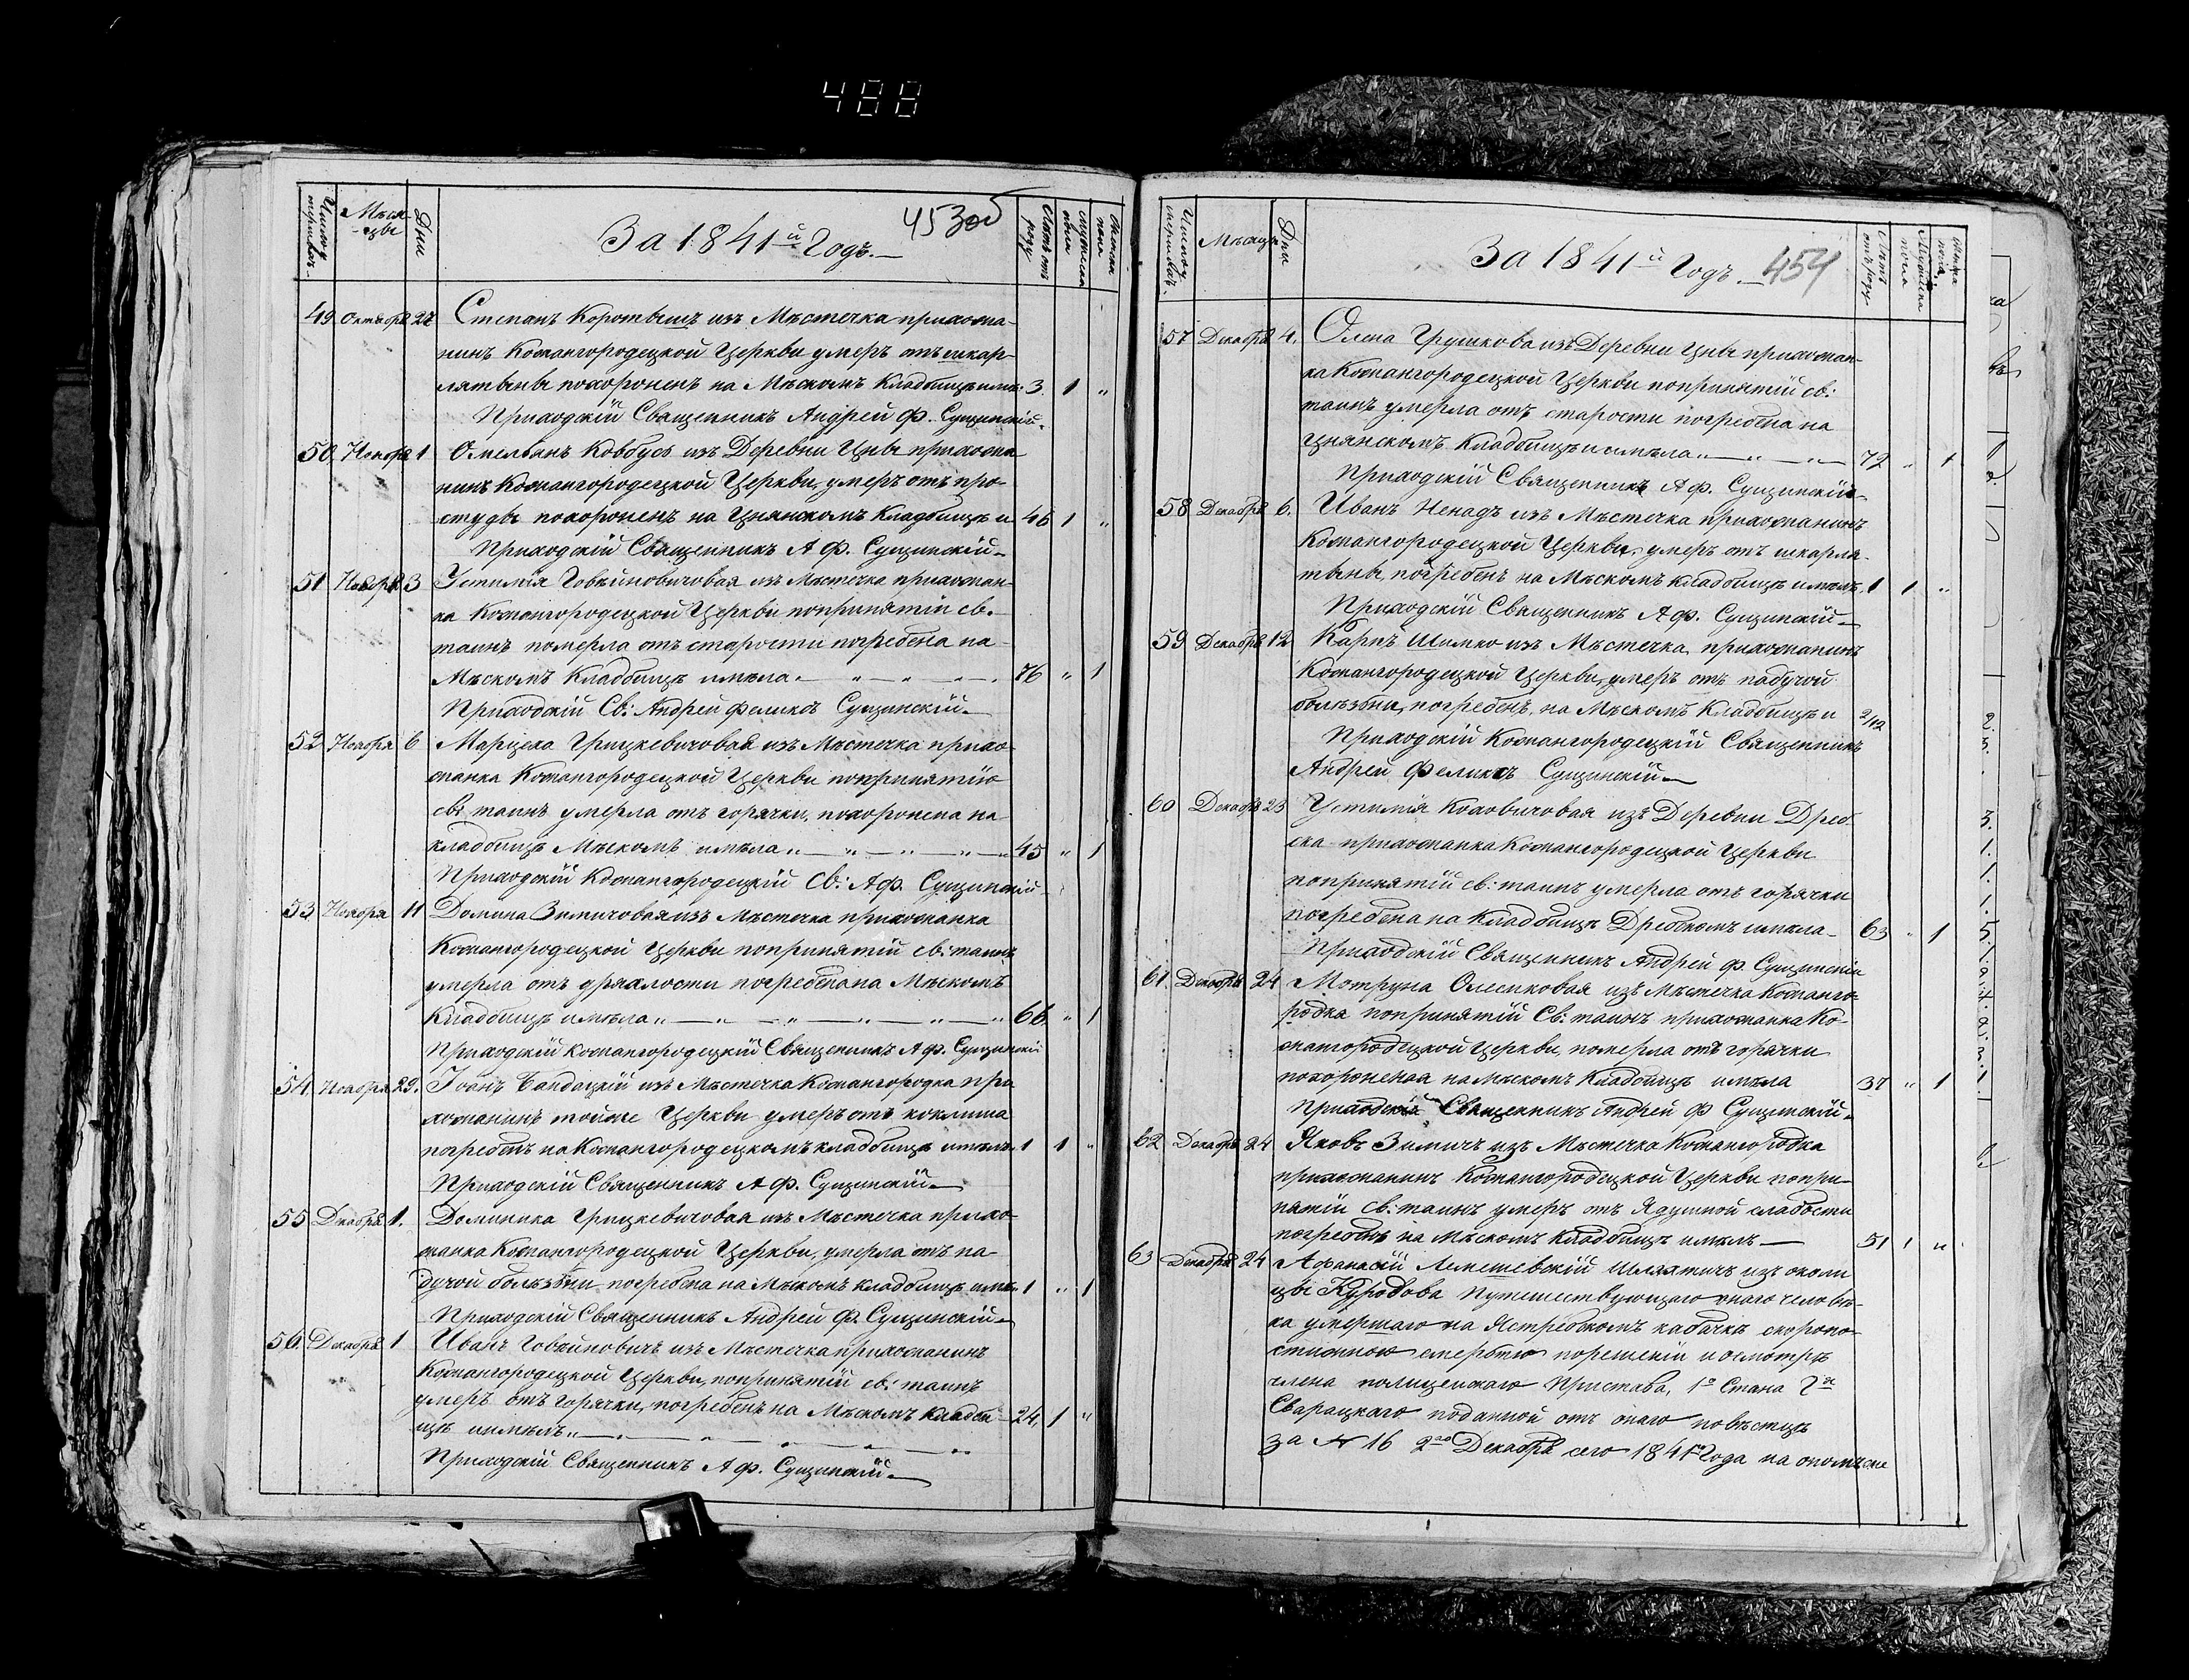 488
Число умершихъ.
Мѣся-
-цы
Дни
За 1841й Годъ.
453об
Лѣтъ отъ роду
мужеска пола
женска пола
49 Октября 27 Степанъ Коротышъ изъ Мѣстечка прихожа-
нинъ Кожангородецкой Церкви умеръ отъ шкар-
лятыны похороненъ на Мѣскомъ Кладбищѣ имѣ: 3 1 „
Приходскій Священникъ Андрей Ф. Сущинскій.
50 Ноября 1 Омельянъ Ковбусь изъ Деревни Цны прихожа-
нинъ Кожангородецкой Церкви, умеръ отъ про-
студы похороненъ на Цнянскомъ Кладбищѣ и 46 1 „
Приходскій Священникъ А Ф. Сущинскій
51 Ноября 3 Устимія Говѣйновичовая изъ Мѣстечка прихожан-
ка Кожангородецкой Церкви попринятіи св.
таинъ померла отъ старости погребена на
Мѣскомъ Кладбищѣ имѣла „ „ „ 76 „ 1
Приходскій Св: Андрей Феликсъ Сущинскій
52 Ноября 6 Марцеха Грицкевичовая изъ Мѣстечка прихо-
жанка Кожангородецкой Церкви попринятію
св: таинъ умерла отъ горячки, похоронена на
кладбищѣ Мѣскомъ имѣла „ „ „ „ „ 45 „ 1
Приходскій Кожангородецкій Св: А Ф. Сущинскій
53 Ноября 11 Домина Зимичовая изъ Мѣстечка прихожанка
Кожангородецкой Церкви попринятій св: таинъ
умерла отъ дряхлости погребена на Мѣскомъ
Кладбищѣ имѣла „ „ „ „ „ 66 „ 1
Приходскій Кожангородецкій Священникъ А Ф. Сущинскій
54 Ноября 29. Іоанъ Бандацкій изъ Мѣстечка Кожангородка при
хожанинъ тойже Церкви умеръ отъ коклиша
погребенъ на Кожангородецкомъ кладбищѣ имѣлъ 1 1 „
Приходскій Священникъ А Ф. Сущинскій
55 Декабря 1. Доминика Грицкевичовая изъ Мѣстечка прихо-
жанка Кожангородецкой Церкви, умерла отъ па-
дучой болѣзни погребена на Мѣскомъ кладбищѣ имѣ: 1 „ 1
Приходскій Священникъ Андрей Ф. Сущинскій
56 Декабря 1 Иванъ Говѣйновичъ изъ Мѣстечка прихожанинъ
Кожангородецкой Церкви, попринятій св: таинъ
умеръ отъ горячки, погребенъ на Мѣскомъ Кладби- 24, 1 „
щѣ иимѣлъ „ „ „ „ „
Приходскій Священникъ А Ф. Сущинскій
Число умершихъ.
Мѣсяцы
Дни
За 1841й Годъ.
454
Лѣтъ отъ роду
Мужеска пола
женска пола
57 Декабря 4. Олена Грушкова изъ Деревни Цны прихожан-
ка Кожангородецкой Церкви попринятій св:
таинъ умерла отъ старости погребена на
Цнянскомъ Кладбищѣ иимѣла „ „ „ 72 „ 1
Приходскій Священникъ А Ф. Сущинскій
58 Декабря 6. Иванъ Ненадъ изъ Мѣстечка прихожанинъ
Кожангородецкой Церкви, умеръ отъ шкарла-
тыны, погребенъ на Мѣскомъ кладбищѣ имѣлъ 1 1 „
Приходскій Священникъ А Ф. Сущинскій
59 Декабря 12 Карпъ Шимко изъ Мѣстечка, прихожанинъ
Кожангородецкой Церкви, умеръ отъ падучой
болѣзни, погребенъ, на Мѣскомъ Кладбищѣ и 2/12
Приходскій Кожангородецкій Священникъ
Андрей Феликсъ Сущинскій
60 Декабря 23 Устимія Коховичовая изъ Деревни Дреб-
ска прихожанка Кожангородецкой Церкви
попринятій св: таинъ умерла отъ горячки
погребена на Кладбищѣ Дребскомъ имѣла 63 „ 1
Приходскій Священникъ Андрей Ф. Сущинскій
61. Декабря 24 Мотруна Олесиковая изъ Мѣстечка Кожанго-
родка попринятій Св: таинъ прихожанка Ко-
жангородецкой Церкви, померла отъ горячки
похороненая на Мѣскомъ Кладбищѣ имѣла 37 „ 1
Приходскій Священникъ Андрей Ф Сущинскій
62 Декабря 24 Яковъ Зимичъ изъ Мѣстечка Кожангородка
прихожанинъ Кожангородецкой Церкви попри-
нятій св: таинъ умеръ отъ Ядушной слабости
погребенъ на Мѣскомъ Кладбищѣ имѣлъ 51 1 „
63 Декабря 24 Афанасій Лемешевскій Шляхтичъ изъ околи
цы Куродова Путешествующаго онаго человѣ-
ка умершаго на Ястребскомъ кабачкѣ скоропо-
стижною смертью порешеніи и осмотрѣ
члена полицейскаго Пристава, 1го Стана Гна
Сварацкаго поданной отъ онаго повѣстцѣ
за N 16 2го Декабря сего 1841го Года на